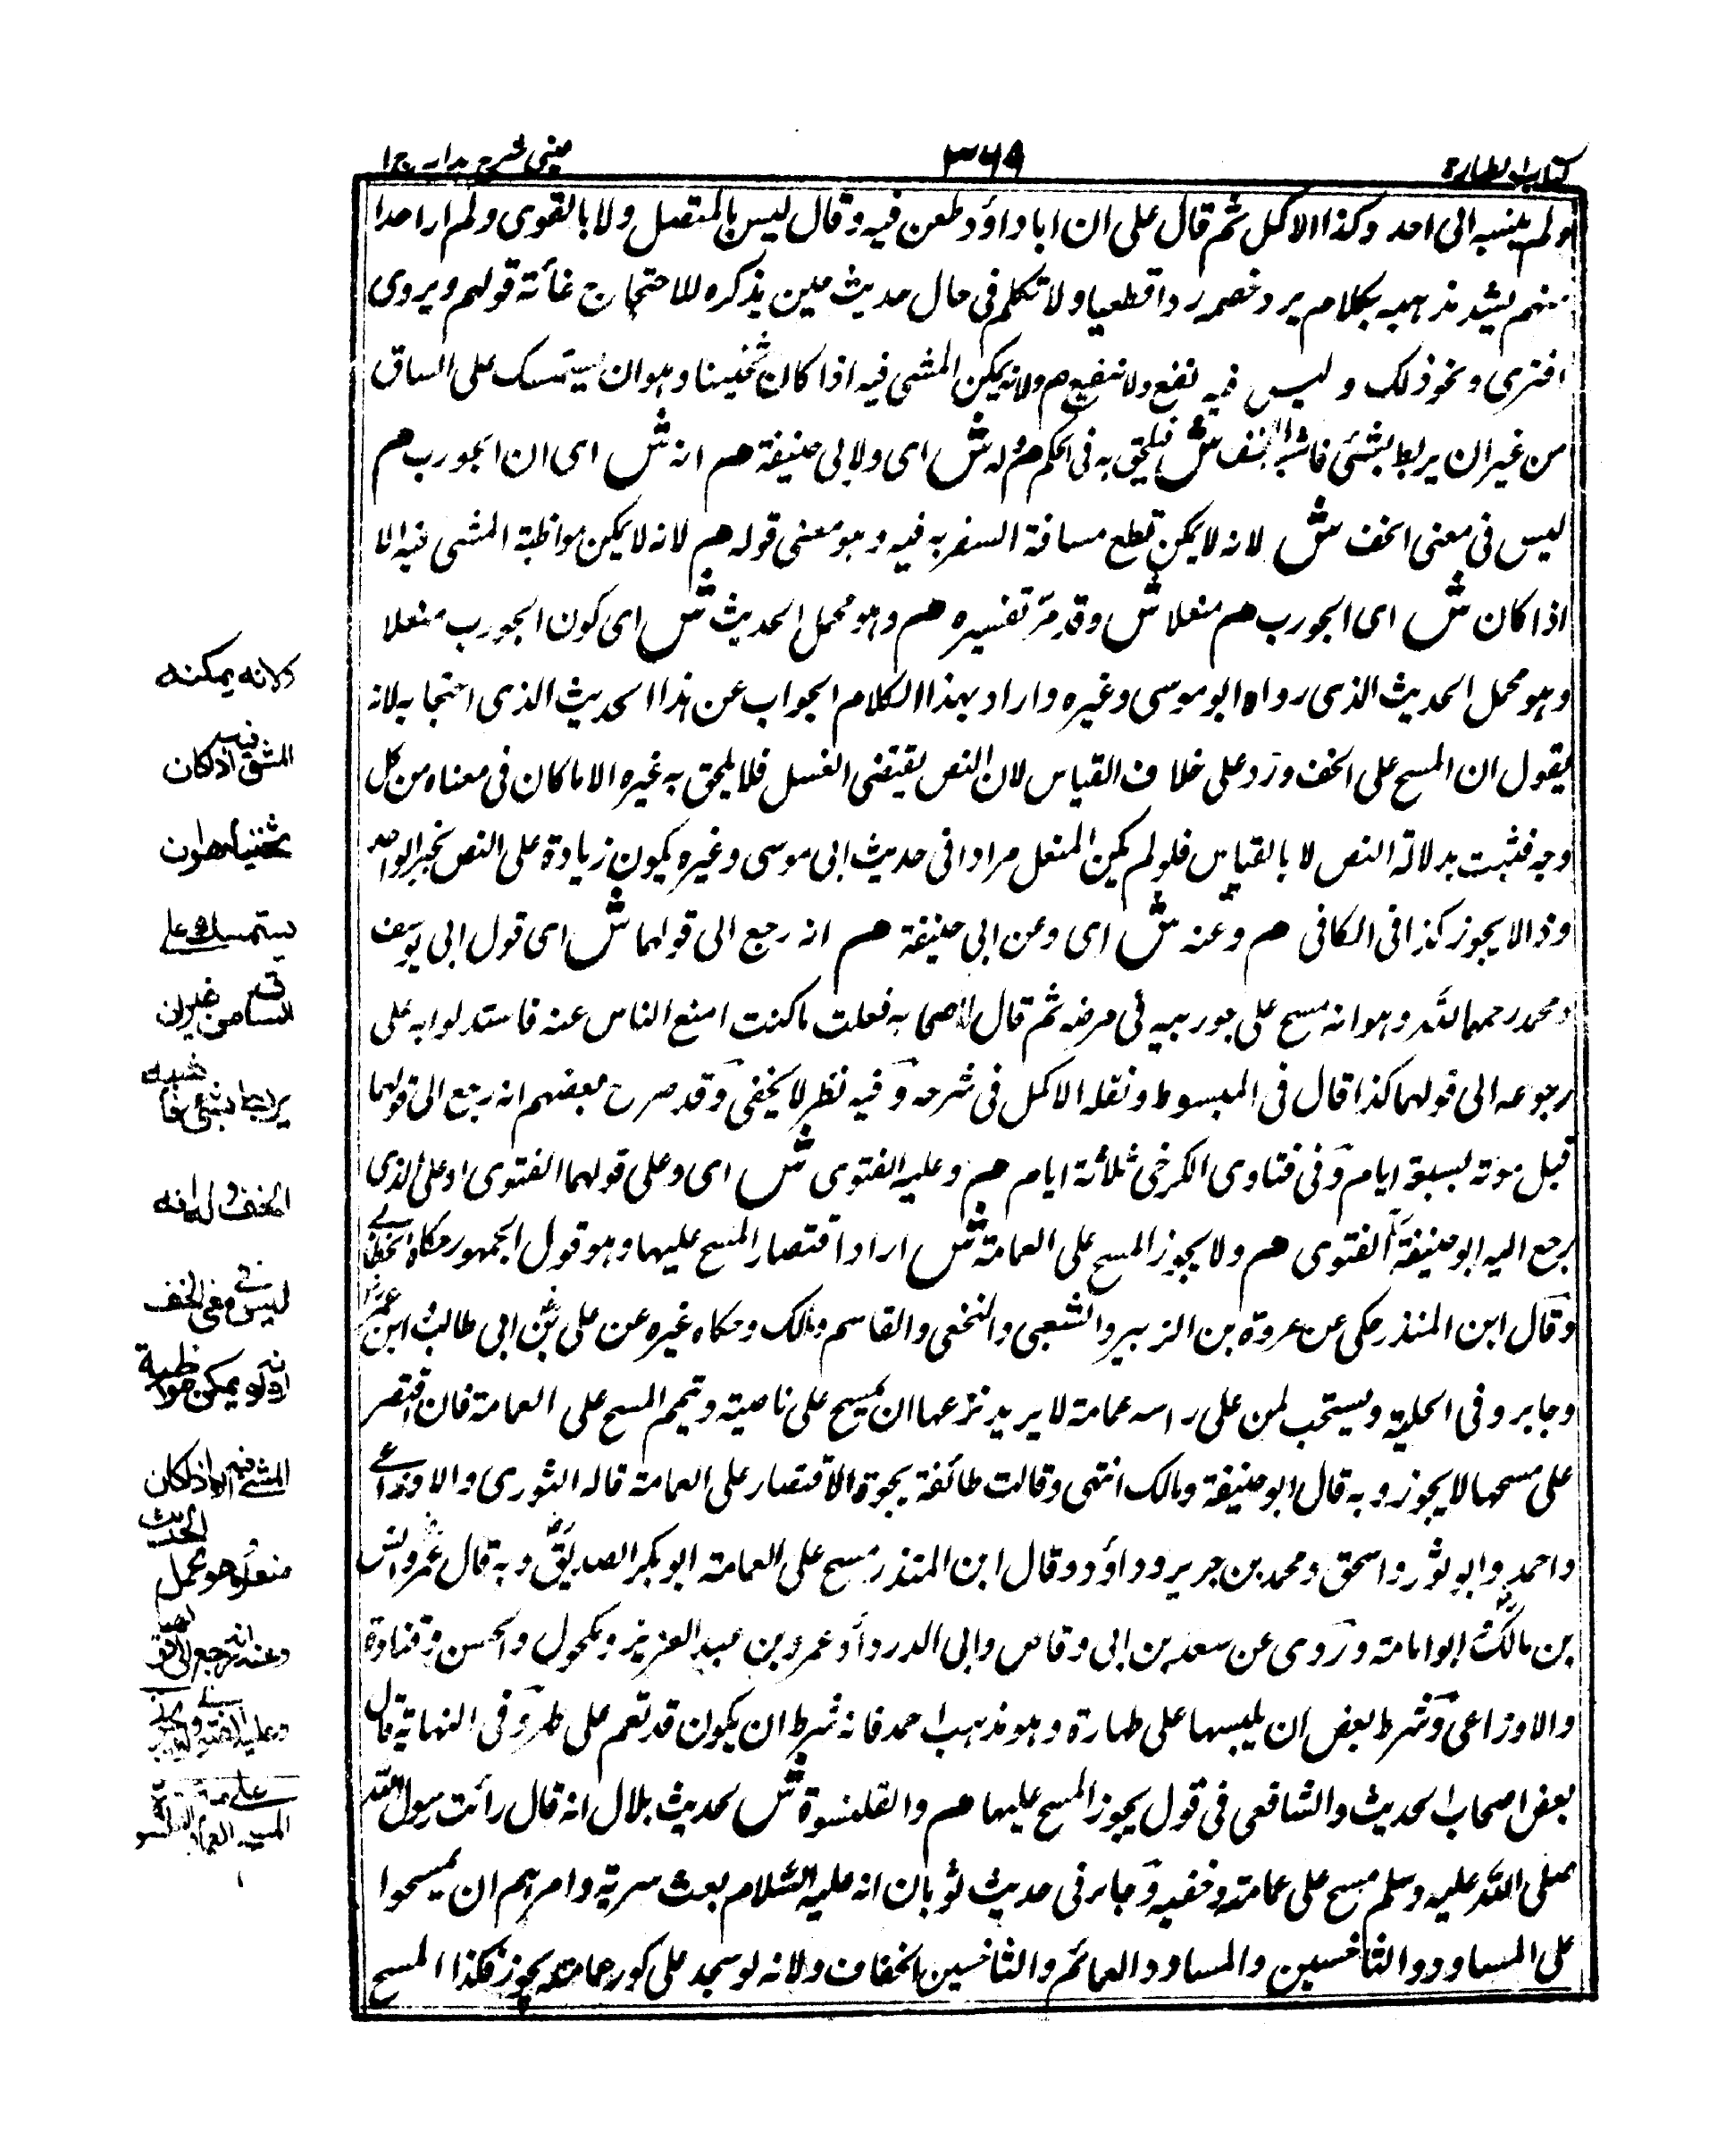 كتاب الطهارة
٣٦٩
عيني شرح هداية ج ١
ولم ينسبه الى احد وكذا الاكمل ثم قال على ان ابا داؤد طعن فيه وقال ليس بالمتصل ولا بالقوى ولم ار احدا
منهم يشيد مذهبه بكلام يرد خصمه ردا قطعيا ولا تكلم فى حال حديث حين يذكره للاحتجاج غائة قولهم ويروى
افترى ونحو ذلك وليس فيه نفع ولا تنقيع م ولانه يمكن المشى فيه اذا كان ثخينا وهو ان يستمسك على الساق
من غير ان يربط بشئى فاشبه الخف ش فيلحق به فى الحكم م وله ش اى ولابى حنيفة م انه ش اى ان الجورب م
ليس فى معنى الخف ش لانه لا يمكن قطع مسافة السفر به فيه وهو معنى قوله م لانه لا يمكن مواظبة المشى فيه الا
اذا كان ش اى الجورب م منعلا ش وقد مر تفسيره م وهو محمل الحديث ش اى كون الجورب منعلا
وهو محمل الحديث الذى رواه ابو موسى وغيره واراد بهذا الكلام الجواب عن هذا الحديث الذى احتجا به لانه
يقول ان المسح على الخف ورد على خلاف القياس لان النص يقتضى الغسل فلا يلحق به غيره الا ما كان فى معناه من كل
وجه فثبت بدلالة النص لا بالقياس فلو لم يكن المنعل مرادا فى حديث ابى موسى وغيره يكون زيادة على النص بخبر الواحد
وذا لا يجوز كذا فى الكافى م وعنه ش اى وعن ابى حنيفة م انه رجع الى قولهما ش اى قول ابى يوسف
ومحمد رحمهما الله وهو انه مسح على جوربيه فى مرضه ثم قال لاصحابه فعلت ما كنت امنع الناس عنه فاستدلوا به على
رجوعه الى قولهما كذا قال فى المبسوط ونقله الاكمل فى شرحه وفيه نظر لا يخفى وقد صرح بعضهم انه رجع الى قولهما
قبل موته بسبعة ايام وفى فتاوى الكرخى ثلاثة ايام م وعليه الفتوى ش اى وعلى قولهما الفتوى او على الذى
رجع اليه ابو حنيفة الفتوى م ولا يجوز المسح على العمامة ش اراد اقتصار المسح عليها وهو قول الجمهور حكاه الخطابى
وقال ابن المنذر حكى عن عروة بن الزبير والشعبى والنخعى والقاسم ومالك وحكاه غيره عن على بن ابى طالب وابن عمر
وجابر وفى الحلية ويستحب لمن على راسه عمامة لا يريد نزعها ان يمسح على ناصيته ويتمم المسح على العمامة فان اقتصر
على مسحها لا يجوز وبه قال ابو حنيفة ومالك انتهى وقالت طائفة بجوة الاقتصار على العمامة قاله الثورى والاوزاعى
واحمد وابو ثور واسحق ومحمد بن جرير وداؤد وقال ابن المنذر مسح على العمامة ابو بكر الصديق وبه قال عمر وانس
بن مالك ابو امامة وروى عن سعد بن ابى وقاص وابى الدرداؤ وعمر وبن عبد العزيز ومكحول والحسن وقتادة
والاوزاعى وشرط بعض ان يلبسها على طهارة وهو مذهب احمد فانه شرط ان يكون قد تعم على طهر وفى النهاية قال
بعض اصحاب الحديث والشافعى فى قول يجوز المسح عليها م والقلنسوة ش لحديث بلال انه قال رائت رسول الله
صلى الله عليه وسلم مسح على عمامته وخفيه وجابر فى حديث ثوبان انه عليه السلام بعث سرية وامرهم ان يمسحوا
على المساود والثاخسين والمساود العمائم والثاخسين الخفاف ولانه لو سجد على كور عمامته يجوز فكذا المسح
ولانه يمكنه
المشى فيه اذا كان
ثخينا وهو ان
يستمسك على
الساق من غير ان
يربط بشئ فاشبه
الخف وله انه
ليس فى معنى الخف
لانه لا يمكن مواظبة
المشى فيه الا اذا كان
منعلا وهو محمل الحديث
وعنه انه رجع الى قولهما
وعليه الفتوى ولا يجوز
المسح على العمامة والقلنسوة